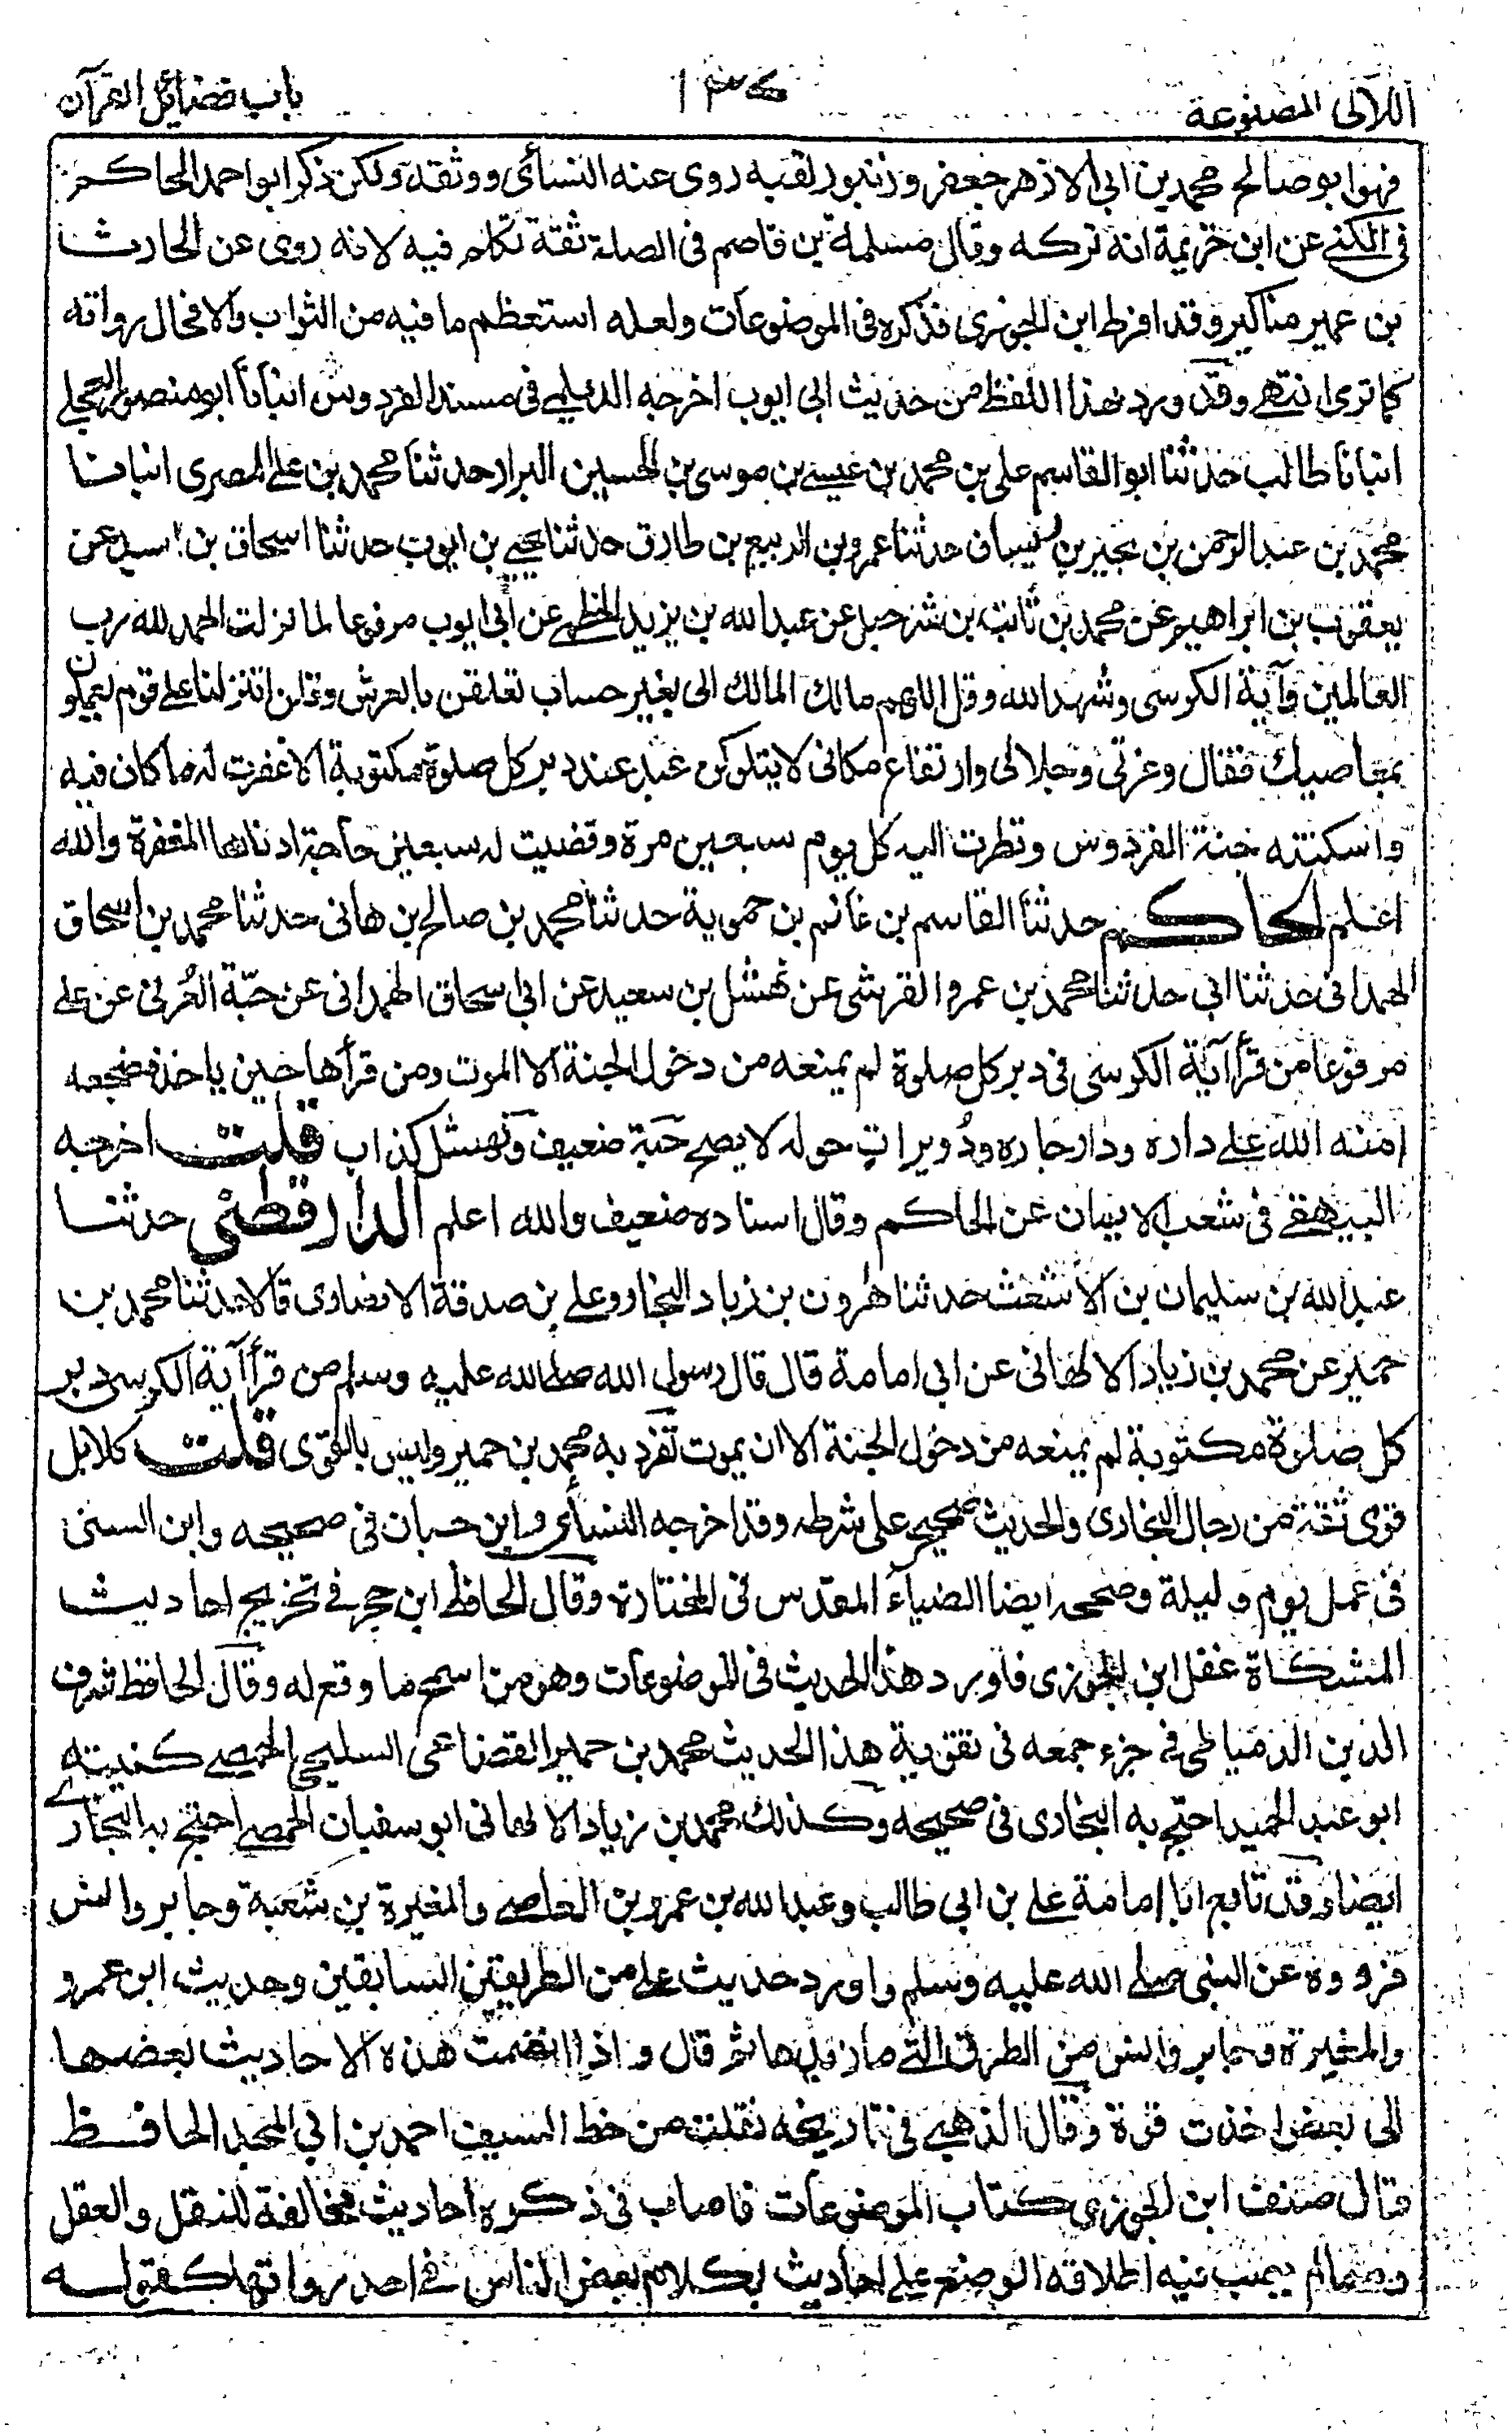 اللآلى المصنوعة
١٣٤
باب فضائل القرآن
فهوا بو صالح محمد بن ابى الازهر جعفر وزنبور لقبه روى عنه النسأى ووثقه ولكن ذكرابواحمد الحاكم
فى الكنى عن ابن خزيمة انه تركه وقال مسلمة بن قاسم فى الصلة ثقة تكلم فيه لانه روى عن الحارث
بن عمير مناكير وقد افرط ابن الجوزى فذكره فى الموضوعات ولعله استعظم ما فيه من الثواب والا فحال رواته
كما ترى انتهى وقد ورد بهذا اللفظ من حديث ابى ايوب اخرجه الديلمى فى مسند الفردوس انبأنا ابو منصور العجلى
انبانا طالب حدثنا ابو القاسم على بن محمد بن عيسى بن موسى بن الحسين البزار حدثنا محمد بن على المصرى انبانا
محمد بن عبد الرحمن بن بحير بن حدثنا عمرو بن الربيع بن طارق حدثنا يحيى بن ايوب حدثنا اسحاق بن اسيد عن
يعقوب بن ابراهيم عن محمد بن ثابت بن شرحبيل عن عبد الله بن يزيد الخطمى عن أبى ايوب مرفوعا لما نزلت الحمد لله رب
العالمين وآية الكرسى وشهد الله وقل اللهم مالك الملك الى بغير حساب تعلقن بالعرش وقلن اتنزلنا على قوم يعملون
بمعاصيك فقال وعزتى وجلالى وارتفاع مكانى لا يتلوكن عبد عند دبر كل صلوة مكتوبة الا غفرت له ما كان فيه
واسكنته جنة الفردوس ونظرت اليه كل يوم سبعين مرة وقضيت له سبعين حاجة ادناها المغفرة والله
اعلم الحاكم حدثنا القاسم بن غانم بن حموية حدثنا محمد بن صالح بن هانى حدثنا محمد بن اسحاق
الهمدانى حدثنا ابى حدثنا محمد بن عمرو القرشى عن نهشل بن سعيد عن ابى اسحاق الهمدانى عن حبّة العُرنى عن على
مرفوعا من قرأ آية الكرسى فى دبر كل صلوة لم يمنعه من دخول الجنة الا الموت ومن قرأها حين ياخذ مضجعه
امنه الله على داره ودار جاره ودُويراتٍ حوله لا يصح حبة ضعيف ونهشل كذاب قلت اخرجه
البيهقى فى شعب الايمان عن الحاكم وقال اسناده ضعيف والله اعلم الدارقطنى حدثنا
عبد الله بن سليمان بن الاشعث حدثنا هرون بن زياد النجار وعلى بن صدقة الانصارى قالا حدثنا محمد بن
حمير عن محمد بن زياد الالهانى عن ابى امامة قال قال رسول الله صلى الله عليه وسلم من قرأ آية الكرسى دبر
كل صلوة مكتوبة لم يمنعه من دخول الجنة الا ان يموت تفرد به محمد بن حمير وليس بالقوى قلت كلا بل
قوى ثقة من رجال البخارى والحديث صحيح على شرطه وقد اخرجه النسأى وابن حبان فى صحيحه وابن السنى
فى عمل يوم وليلة وصححه ايضا الضياء المقدس فى المختارة وقال الحافظ ابن حجر فى تخريج احاديث
المشكاة غفل ابن الجوزى فاورد هذا الحديث فى الموضوعات وهو من اسمج ما وقع له وقال الحافظ شرف
الدين الدمياطى فى جزء جمعه فى تقوية هذا الحديث محمد بن حمير القضاعى السليحى الحمصى كنيته
ابو عبد الحميد احتج به البخارى فى صحيحه وكذلك محمد بن زياد الالهانى ابو سفيان الحمصى احتج به البخارى
ايضا وقد تابع ابا إمامة على بن ابى طالب وعبد الله بن عمرو بن العاصى والمغيرة بن شعبة وجابر وانس
فرووه عن النبى صلى الله عليه وسلم واورد حديث على من الطريقين السابقين وحديث ابن عمرو
والمغيرة وجابر وانس من الطرق التى ثم قال واذا انضمت هذه الاحاديث بعضها
الى بعض اخذت قوة وقال الذهبى فى تاريخه نقلت من خط السيف احمد بن ابى المجد الحافظ
قال صنف ابن الجوزى كتاب الموضوعات فاصاب فى ذكره احاديث مخالفة للنقل والعقل
ومما لم يصب فيه اطلاقه الوضع على احاديث بكلام بعض الناس فى احد رواتها كقوله